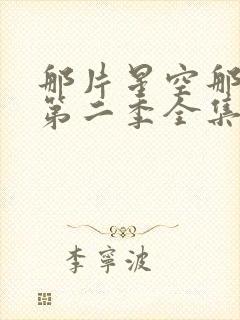 那片星空那
第二季全集
李寧波